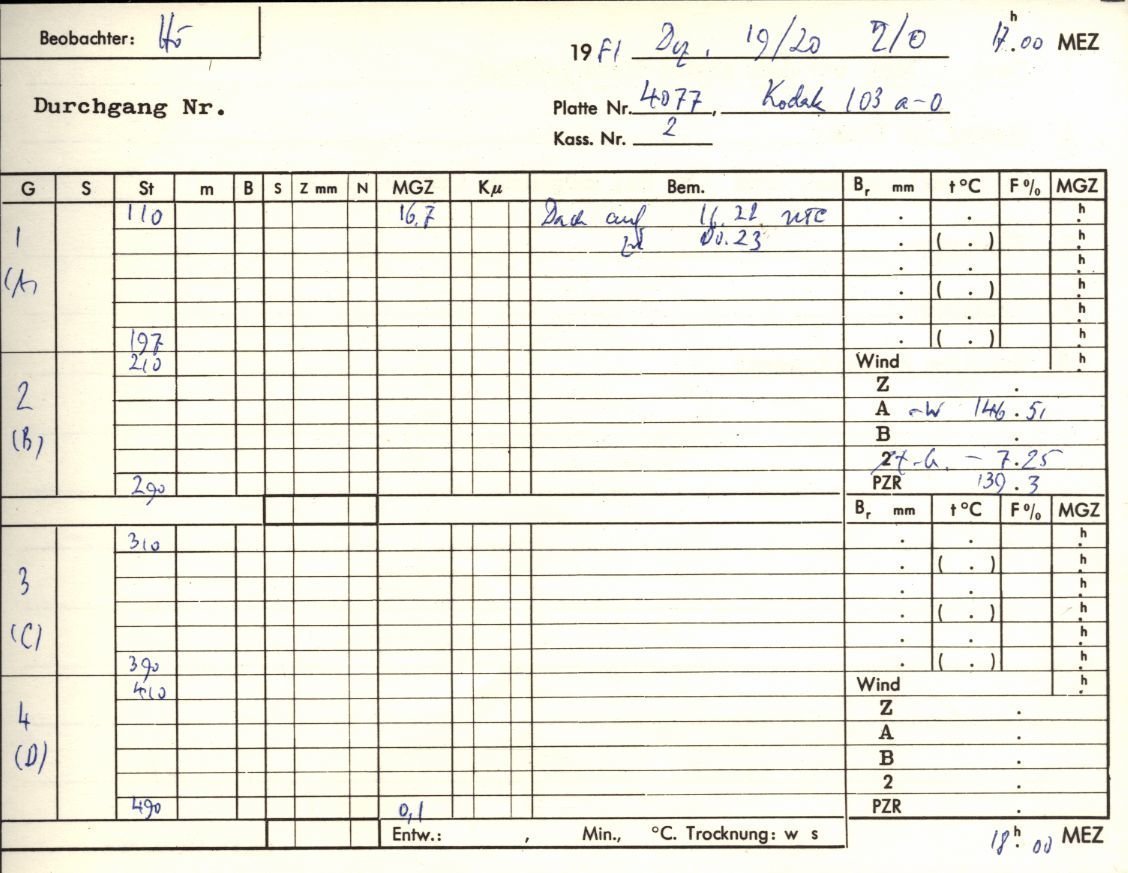 Beobachter: Hö
19 81 Dez. 19/20 2/0 17.h00 MEZ
Durchgang Nr.
Platte Nr. 4077, Kodak 103 a-O
Kass. Nr. 2
G S St m B S Z mm N MGZ Kμ Bem. Br mm t °C F % MGZ
1 110 16,7 Dach auf 16.22 UTC . . h.
(A) zu 00.23 . ( . ) h.
. . h.
. ( . ) h.
. . h.
197 . ( . ) h.
2 210 Wind h.
(B) Z .
A -W 146.51
B .
2 - 7.25
290 PZR 139.3
Br mm t °C F % MGZ
3 310 . . h.
(C) . ( . ) h.
. . h.
. ( . ) h.
. . h.
390 . ( . ) h.
4 410 Wind h.
(D) Z .
A .
B .
2 .
490 0,1 PZR .
Entw.: , Min., °C. Trocknung: w s
18h.00 MEZ